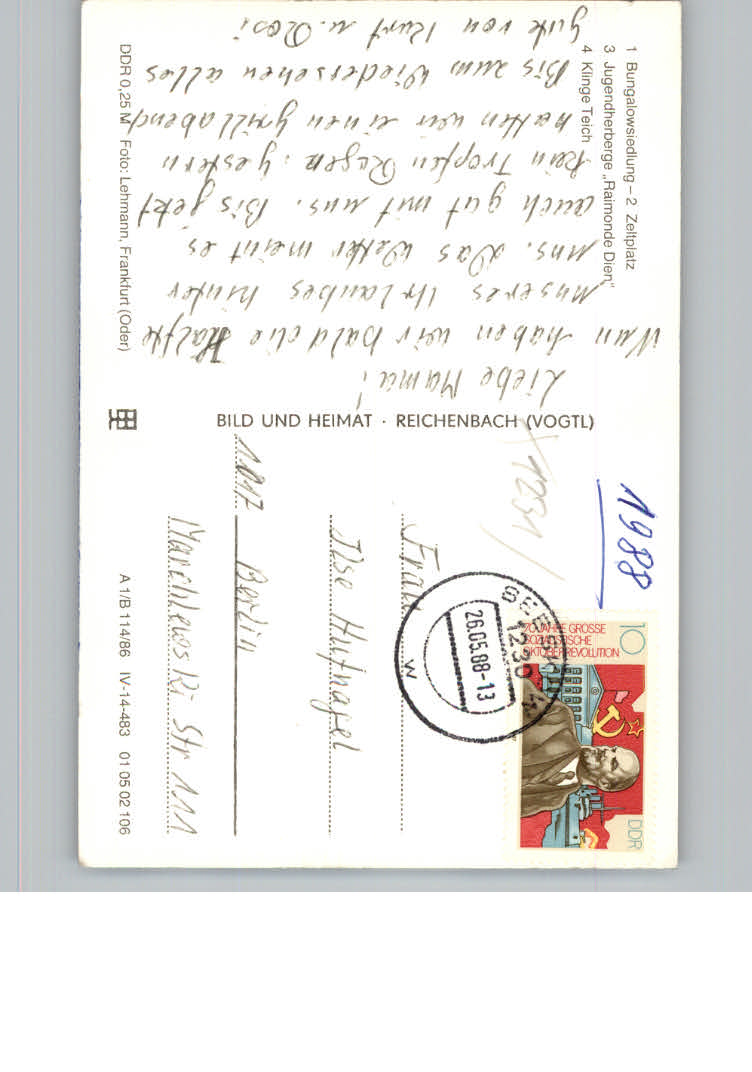 1 Bungalowsiedlung – 2 Zeltplatz
3 Jugendherberge „Raimonde Dien“
4 Klinge Teich
Liebe Mama!
Nun haben wir bald die Hälfte
unseres Urlaubes hinter
uns. Das Wetter meint es
auch gut mit uns. Bis jetzt
kein Tropfen Regen. Gestern
hatten wir einen Grillabend
Bis zum Wiedersehen alles
Gute von Kurt u. Rosi
DDR 0,25 M Foto: Lehmann, Frankfurt (Oder)
BILD UND HEIMAT · REICHENBACH (VOGTL)
1988
1231
10
70 JAHRE GROSSE
SOZIALISTISCHE
OKTOBERREVOLUTION
DDR
1230
26.05.88-13
w
Frau
Ilse Hufnagel
1017 Berlin
Marchlewski Str 111
A 1/B 114/86 IV-14-483 01 05 02 106